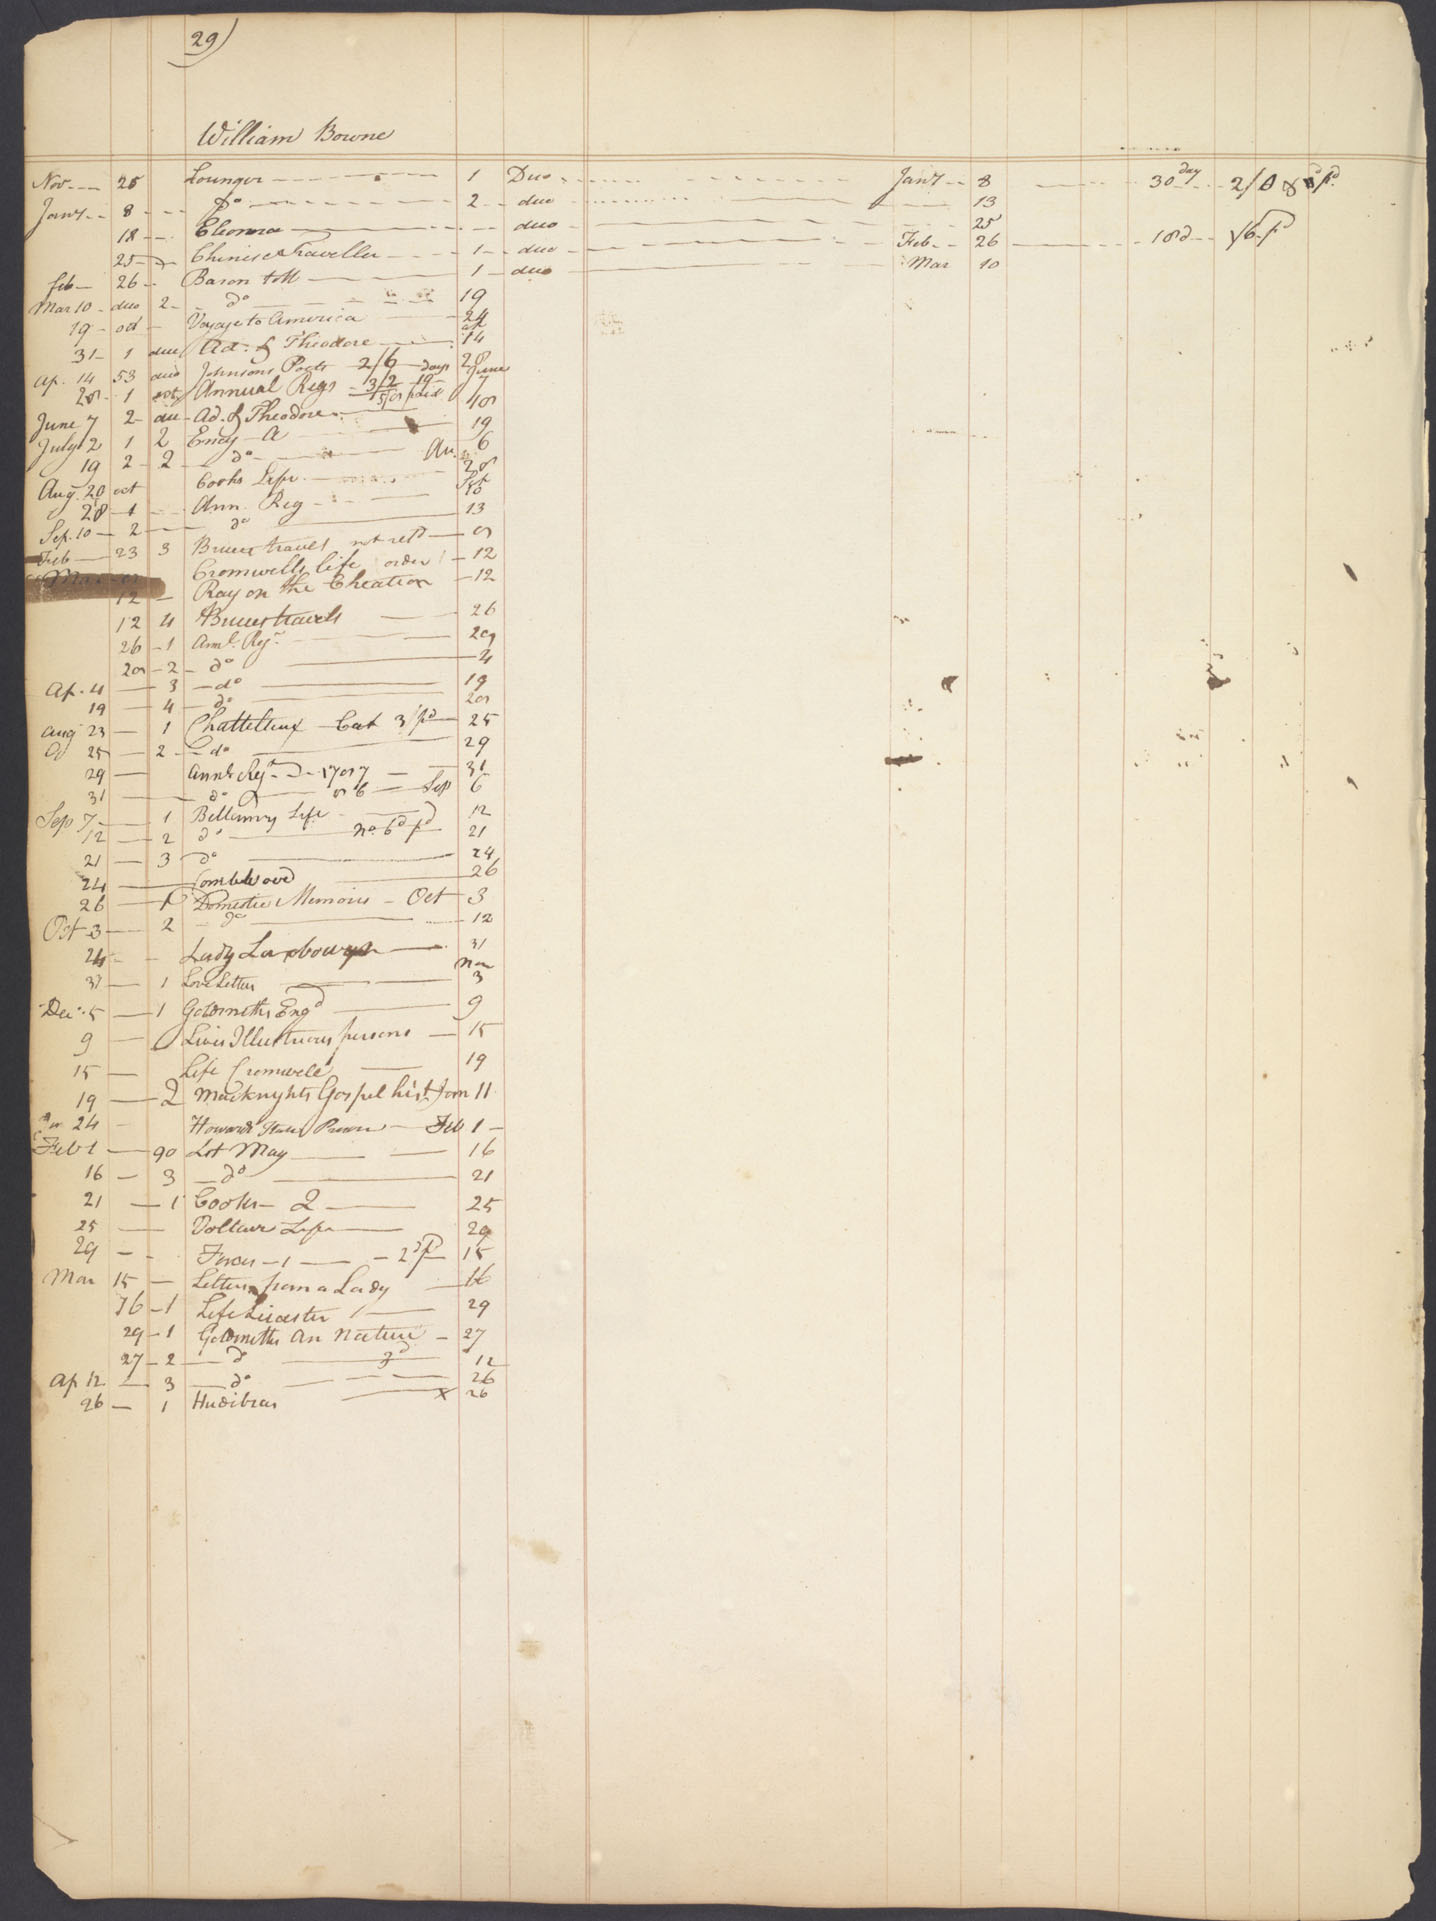 29)
William Bowne
Nov 25 Lounger 1 Duo Jany 8 30 day 2/8 pd
Jany 8 do 2 duo 13
18 Eleonora duo 25
25 Chinise Traveller 1 duo Feb 26 18d 1/6 pd
Feb 26 Baron tott 1 duo Mar 10
Mar 10 duo 2 do 19
19 oct Voyage to America 24
31 1 duo Ad: & Theodore ap 14
Ap. 14 53 duo Johnsons Poets 2/6 days 28
28 1 oct Annual Regs 3/2 19 June 7
5/8 paid
June 7 2 duo Ad. & Theodore 18
July 2 1 2 Ency A 19
19 2 2 do Au. 6
Aug. 20 oct Cooks Life 28
28 1 Ann. Reg Sep 10
Sep. 10 2 do 13
Feb 23 3 Bruces travels not retd 8
Mar 8 Cromwells life order 12
12 Ray on the Creation 12
12 4 Bruces travels 26
26 1 Annl. Regr 29
29 2 do 4
Ap. 4 3 do 19
19 4 do 28
aug 23 1 Chattelleux Cat 3/pd 25
25 2 do 29
29 Annl Regr 1787 31
31 do 86 Sep 6
Sep 7 1 Bellamy Life 12
12 2 do no. 6d pd 21
21 3 do 24
24 26
26 1 Domestic Memoirs Oct 3
Oct 3 2 do 12
24 Lady 31
31 1 Love Letters Nov 3
Dec. 5 1 Goldsmiths Engd 9
9 Lives Illustrious persons 15
15 Life Cromwell 19
19 2 Macknights Gospel hist. Jan 11
24 Howards State Prisons Feb 1
Feb 1 90 Lot Mag 16
16 3 do 21
21 1 Cooks 2 25
25 Voltaire Life 29
29 1 2d pd 15
Mar 15 Letters from a Lady 16
16 1 Life Licester 29
29 1 Goldsmiths An Nature 27
27 2 do 3d 12
Ap 12 3 do 26
26 1 Hudibras x 26